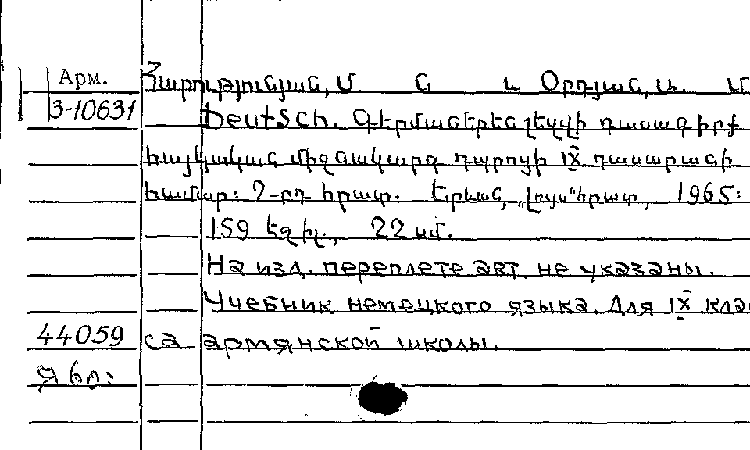 Арм.
Հարությունյան, Մ. Ն և Օրդյան, Ա. Մ
3-10631
Deutsch. Գերմաներեն լեզվի դասագիրք
հայկական միջնակարգ դպրոցի IX դասարանի
համար: 7-րդ հրատ. Երևան, „Լույս" հրատ, 1965:
159 եզ իլ., 22 սմ.
На изд. переплете авт. не указаны.
Учебник немецкого языка. Для IX клас
44059
са армянской школы.